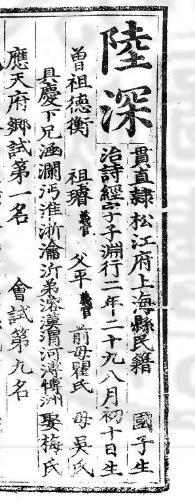 陸深
貫直隸松江府上海縣民籍 國子生
治詩經字子淵行二年二十九八月初十日生
曾祖德衡 祖璿義官 父平義官 前母瞿氏 母吳氏
具慶下兄涵瀾沔淮浙瀹沂弟溶渭河溥洲 娶梅氏
應天府鄉試第一名 會試第九名